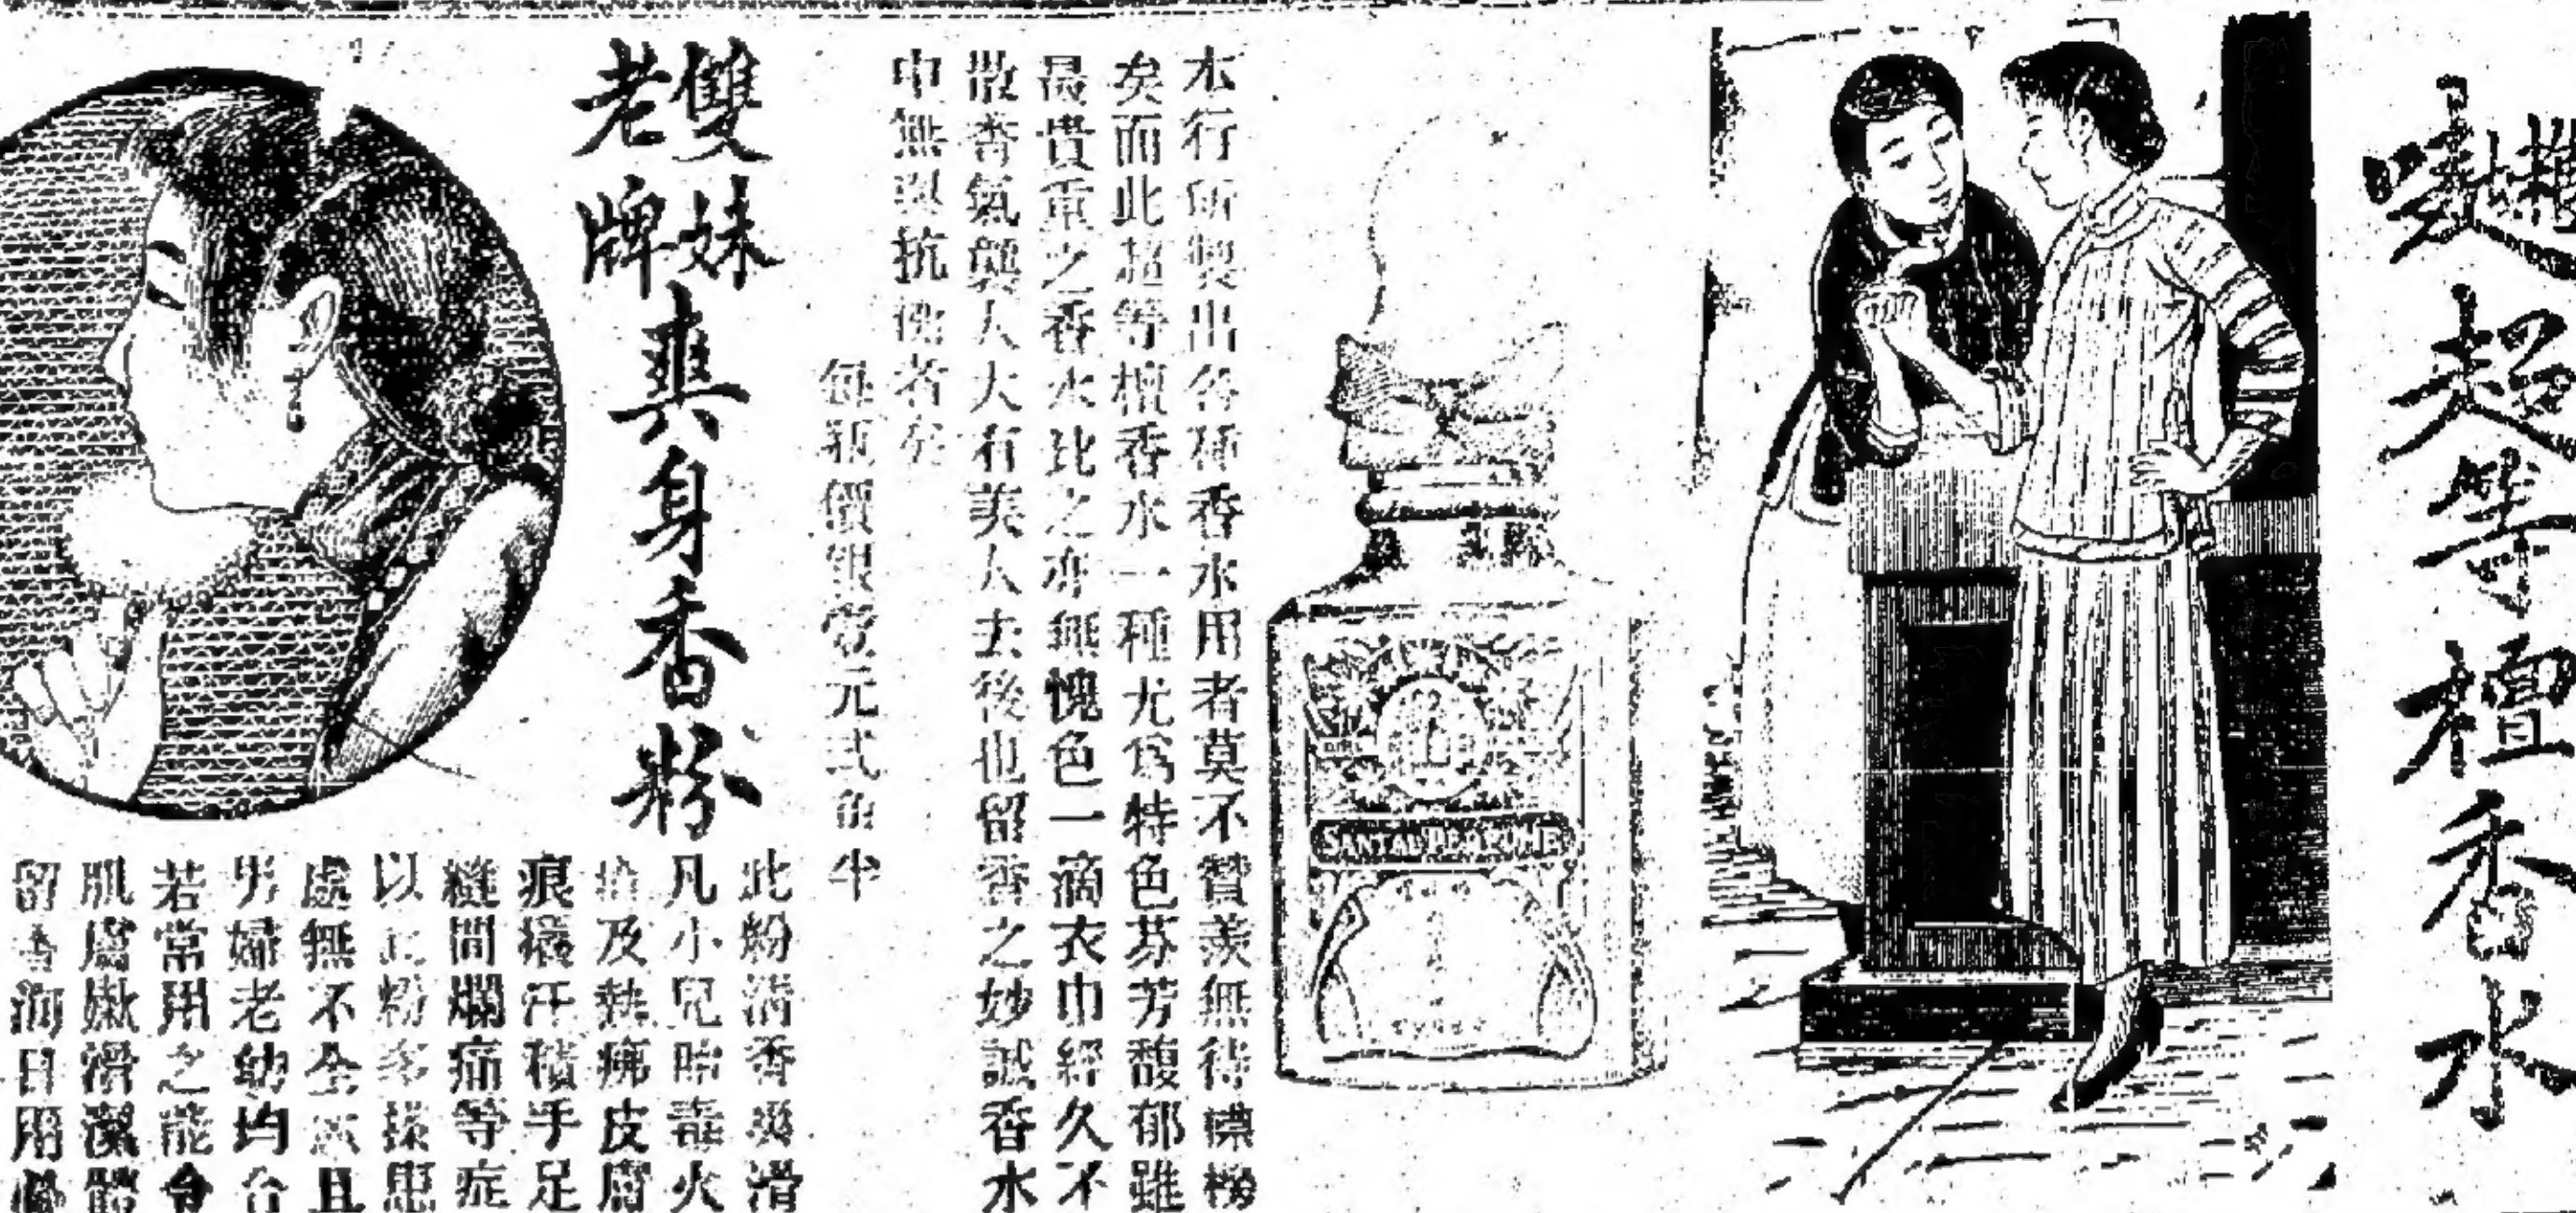 超等檀香水
本行所製出各種香水用者莫不贊羨無待標榜
矣而此超等檀香水一種尤為特色芬芳馥郁雖
最貴重之香水比之亦無愧色一滴衣巾經久不
散香氣襲人大有美人去後也留香之妙誠香水
中無與抗衡者矣
每瓶價銀壹元弍角半
SANTAL PERFUME
雙妹
老牌
爽身香粉
此粉清香爽滑
凡小兒胎毒火
及熱痱皮膚
痕癢汗積手足
縫間爛痛等症
以此粉多搽患
處無不全且
男婦老幼均合
若常用之能令
肌膚嫩滑潔
留香 日用